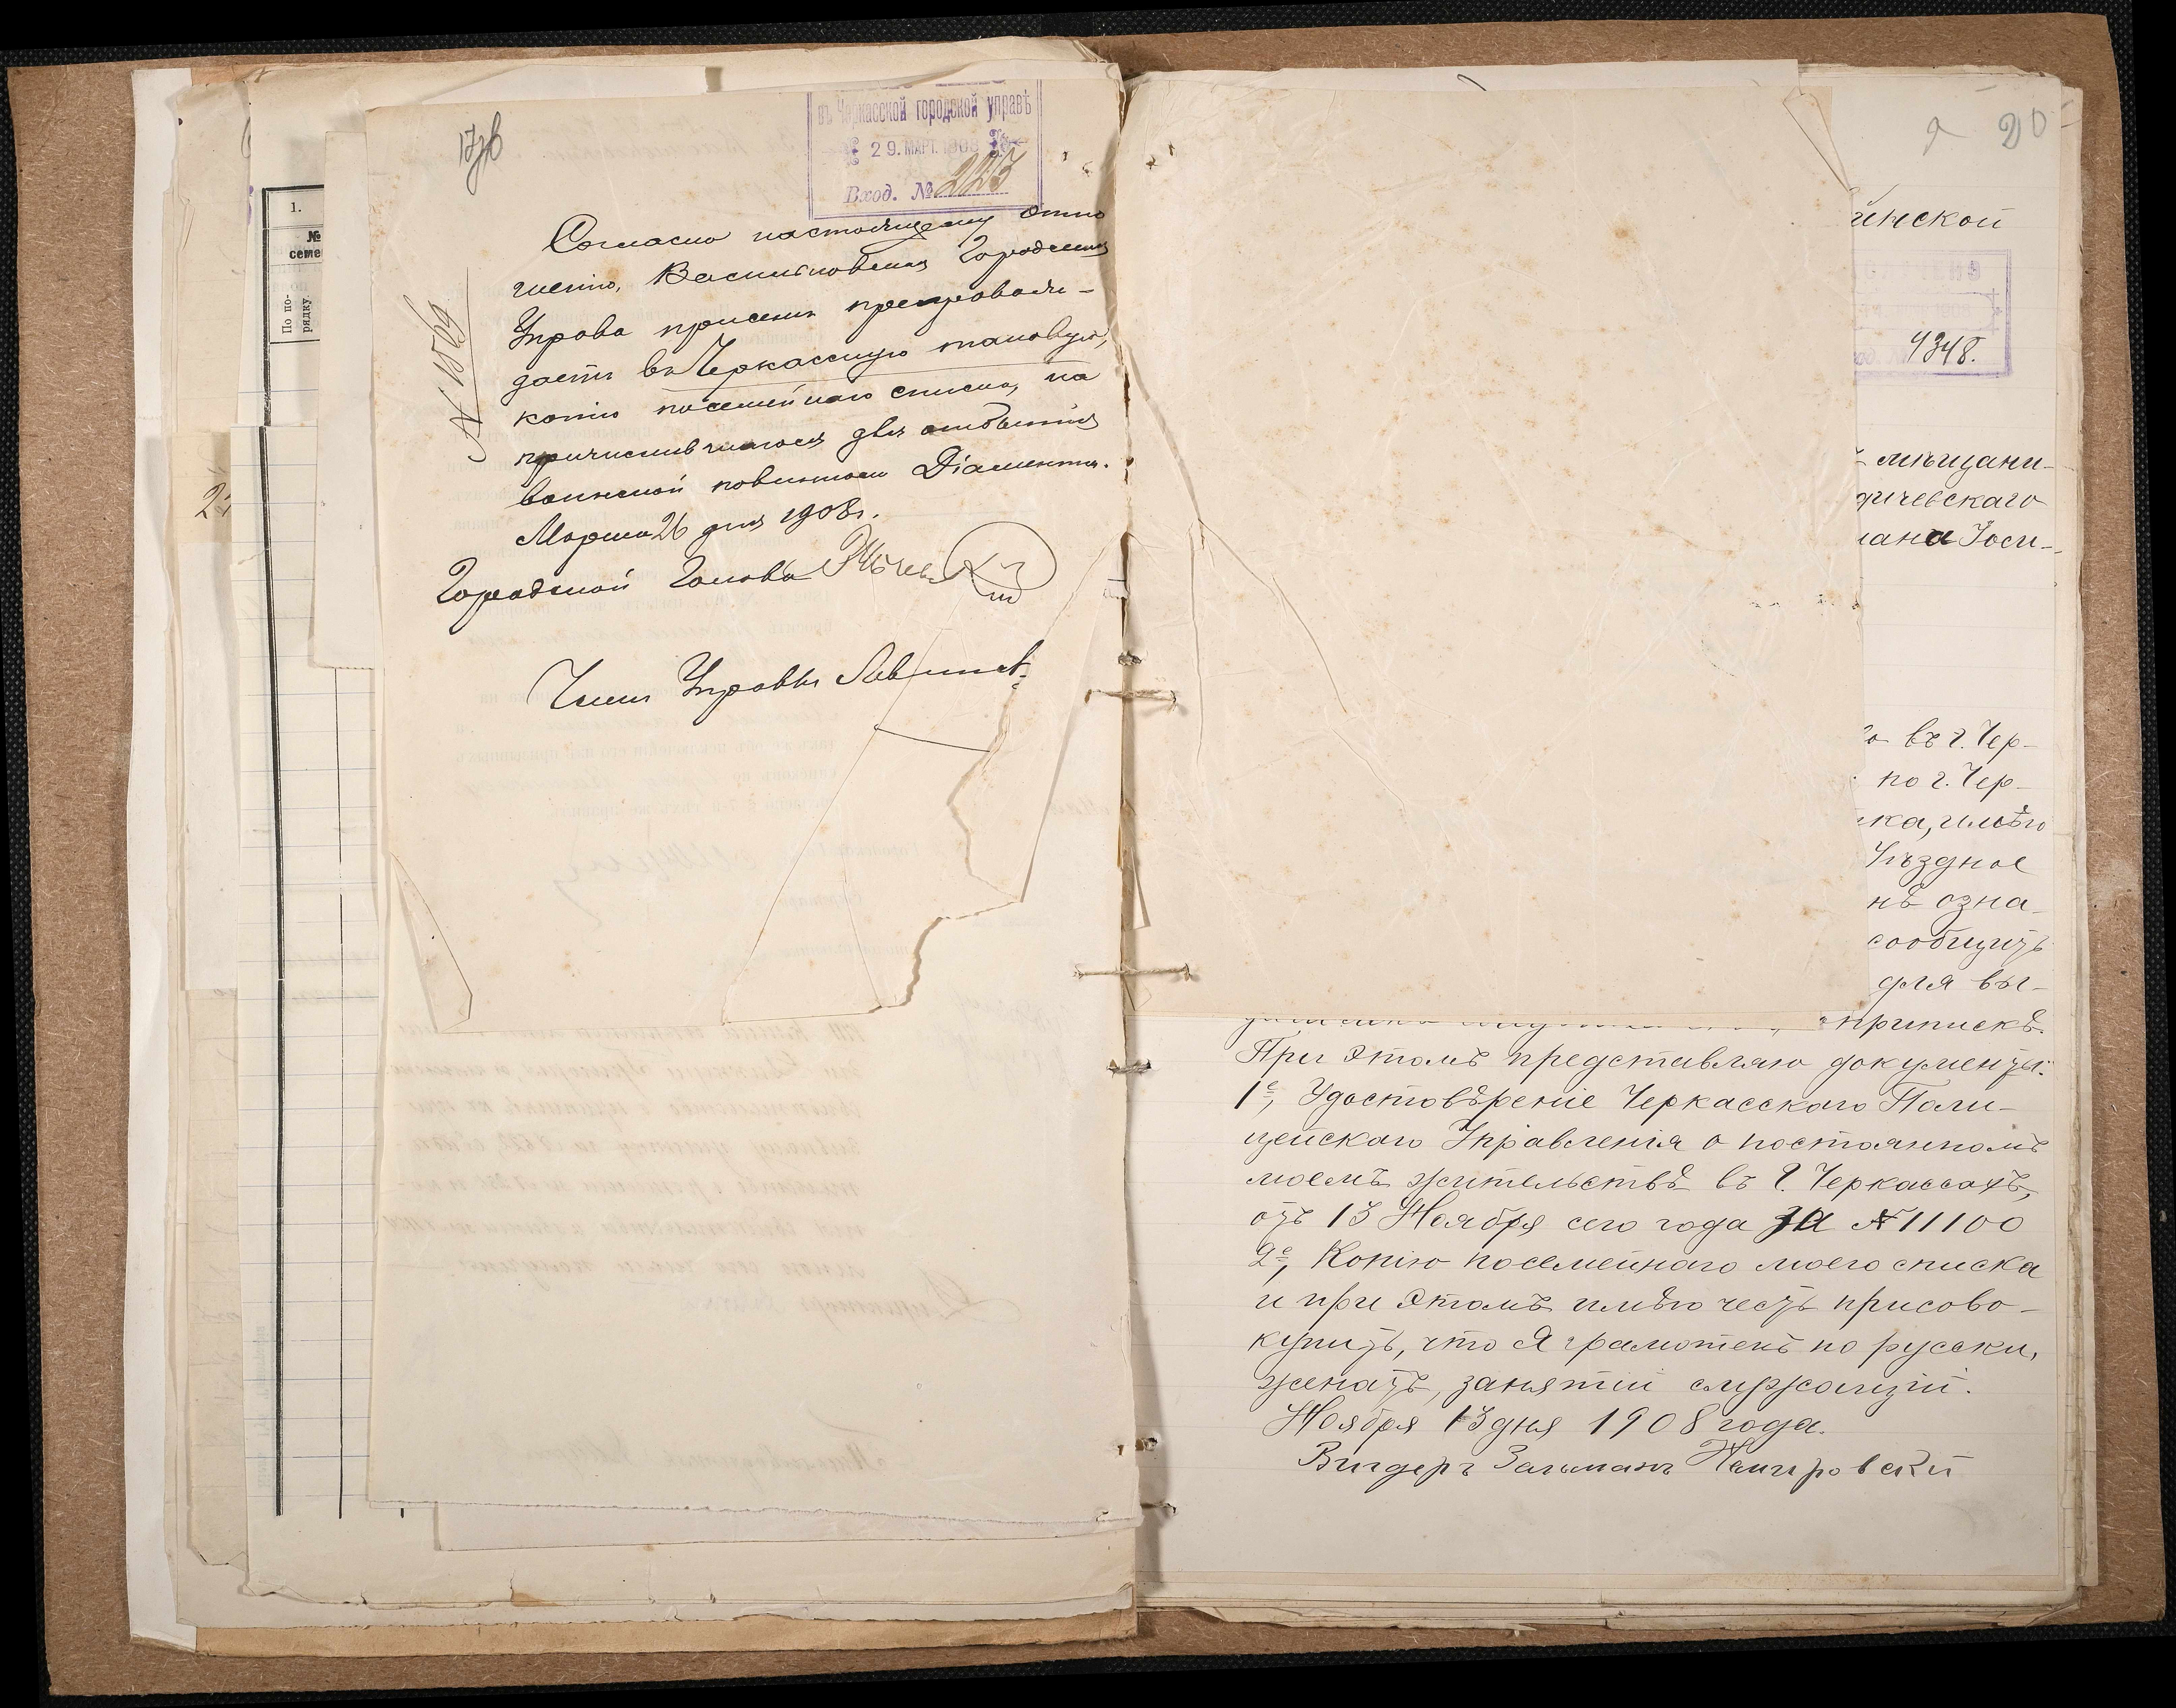 въ Черкасской городской управѣ
29. МАРТ. 1908
Вход. № 223
№ 1569
Согласно настоящему отно
шенію, Васильковская Городская
Управа проситъ препроводи-
дасть въ Черкасскую таковую,
копію посемейнаго списка, на
причислившагося для отбытія
воинской повинности Діаманта.
Марта 26 дня 1908 г.
Городской Голова
Членъ Управы
1.
№
семе
По по-
рядку.
20
инской
4348.
мѣщани-
дичевскаго
мана Іоси-
го въ г. Чер-
по г. Чер-
ка, имѣю
Уѣздное
нѣ озна-
сообщить
для вы-
припискѣ.
При этомъ представляю документы:
1е, Удостовѣреніе Черкасскаго Поли-
цейскаго Управленія о постоянномъ
моемъ жительствѣ въ г. Черкассахъ,
отъ 13 Ноября сего года за № 11100
2е, Копію посемейнаго моего списка
и при этомъ имѣю честь присово-
купить, что я грамотенъ по русски,
женатъ, занятій служащій.
Ноября 13 дня 1908 года.
Вигдеръ Зальманъ Немировскій